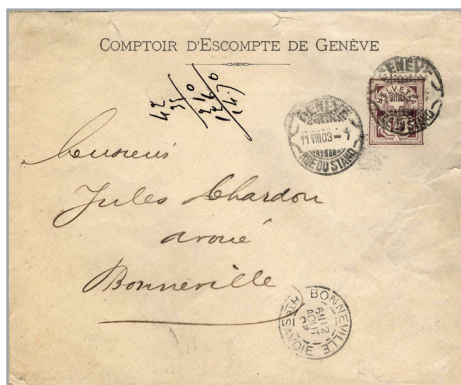 COMPTOIR D'ESCOMPTE DE GENÈVE
GENEVE
11 VIII 03
RUE DU STAND
GENEVE
HELVETIA
Monsieur
Jules Chardon
avoué
Bonneville
BONNEVILLE
12
AOUT
HTE SAVOIE